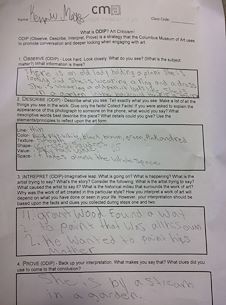 cm
Name:
Class Code:
What is ODIP? Art Criticism!
ODIP (Observe, Describe, Interpret, Prove) is a strategy that the Columbus Museum of Art uses
to promote conversation and deeper looking when engaging with art
1. OBSERVE (ODIP) - Look hard. Look closely. What do you see? (What is the subject
matter? What information is there?
There is an old lady holding a plant She's
2. DESCRIBE (ODIP) - Describe what you see. Tell exactly what you see. Make a list of all the
things you see in the work. Give only the facts! Collect Facts! If you were asked to explain the
appearance of this photograph to someone on the phone, what would you say? What
descriptive words best describe this photo? What details could you give? Use the
elements/principles to reflect upon the art form.
Line:
Color: white, black, brown, green, and red
Texture:
Shape:
Value:
Space: it takes the whole space
3. INTERPRET (ODIP)- Imaginative leap. What is going on? What is happening? What is the
artist trying to say? What's the story? Consider the following: What is the artist trying to say?
What caused the artist to say it? What is the historical milieu that surrounds the work of art?
Why was the work of art created in this particular style? How you interpret a work of art will
depend on what you have done or seen in your life. However, your interpretation should be
based upon the facts and clues you collected during steps one and two.
1. grant wood found a way
to paint that was
2. He wanted to paint his
4. PROVE (ODIP) - Back up your interpretation. What makes you say that? What clues did you
use to come to that conclusion?
She is by a stream
or a garden.